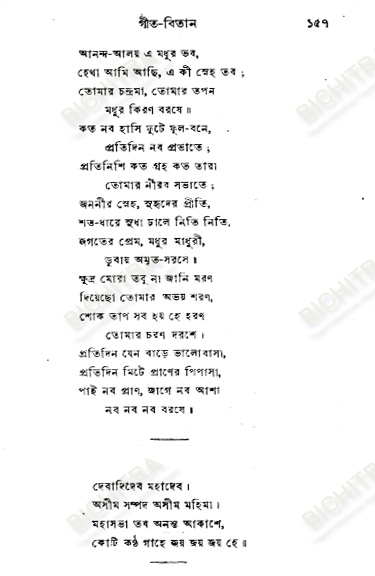 গীত-বিতান ১৫৭
আনন্দ-আলয় এ মধুর ভব,
হেথা আমি আছি, এ কী স্নেহ তব ;
তোমার চন্দ্রমা, তোমার তপন
মধুর কিরণ বরষে ॥
কত নব হাসি ফুটে ফুল-বনে,
প্রতিদিন নব প্রভাতে ;
প্রতিনিশি কত গ্রহ কত তারা
তোমার নীরব সভাতে ;
জননীর স্নেহ, সুহৃদের প্রীতি,
শত-ধারে সুধা ঢালে নিতি নিতি,
জগতের প্রেম, মধুর মাধুরী,
ডুবায় অমৃত-সরসে ॥
ক্ষুদ্র মোরা তবু না জানি মরণ
দিয়েছো তোমার অভয় শরণ,
শোক তাপ সব হয় হে হরণ
তোমার চরণ দরশে ।
প্রতিদিন যেন বাড়ে ভালোবাসা,
প্রতিদিন মিটে প্রাণের পিপাসা,
পাই নব প্রাণ, জাগে নব আশা
নব নব নব বরষে ॥
দেবাদিদেব মহাদেব ।
অসীম সম্পদ অসীম মহিমা ।
মহাসভা তব অনন্ত আকাশে,
কোটি কণ্ঠ গাহে জয় জয় জয় হে ॥
BICHITRA
BICHITRA
BICHITRA
BICHITRA
BICHITRA